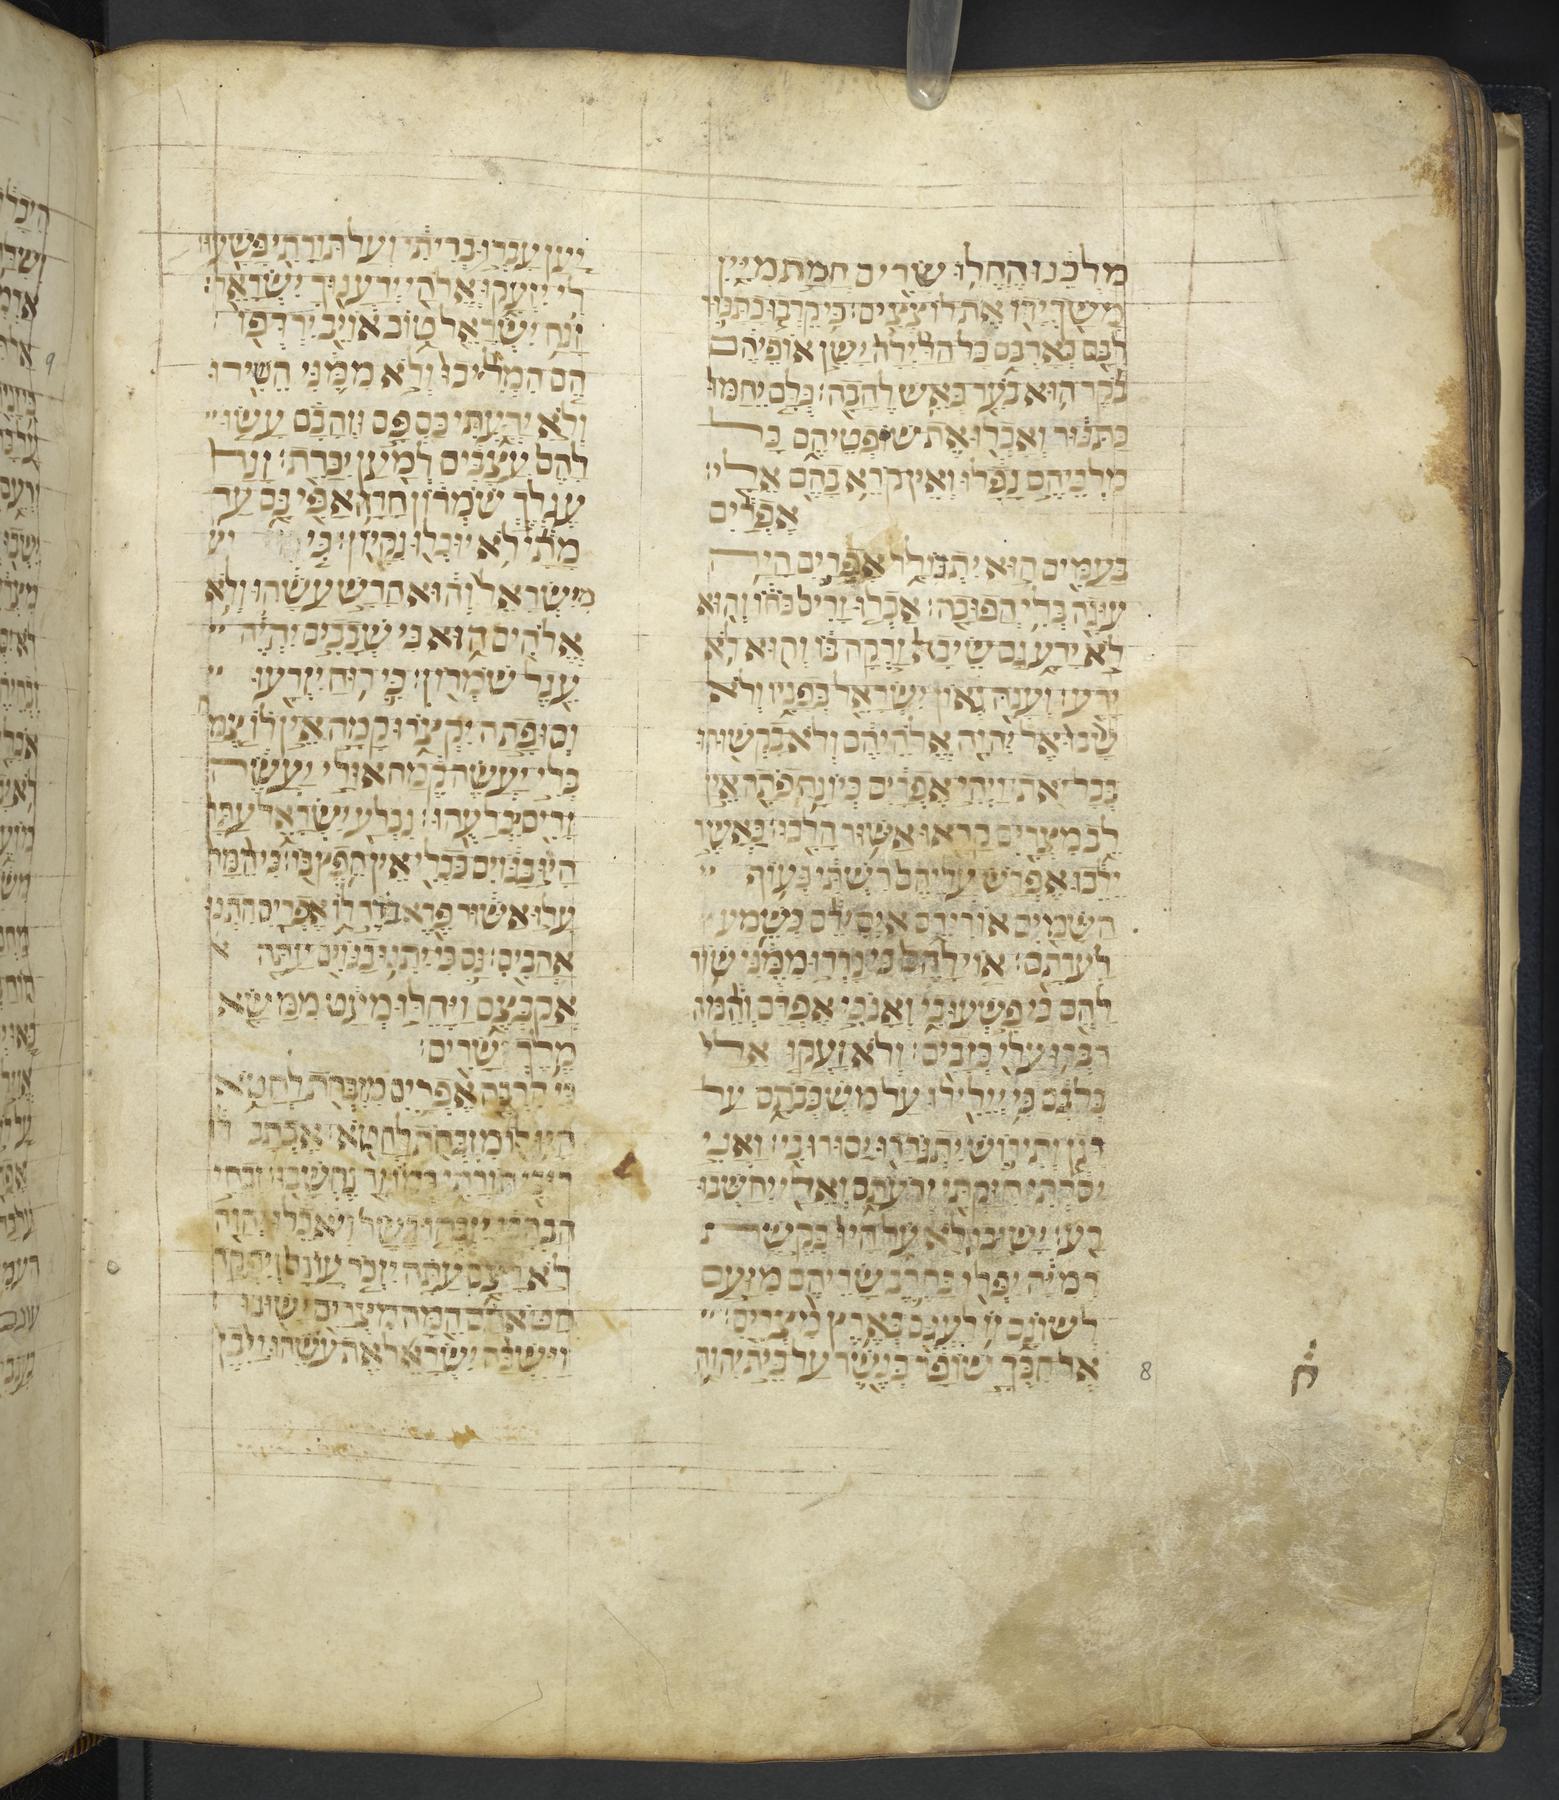 מַלְכֵּנוּ הֶחֱלוּ שָׂרִים חֲמַת מִיָּיִן
מָשַׁךְ יָדוֹ אֶת לוֹצְצִים׃ כִּי קֵרְבוּ כַתַּנּוּר
לִבָּם בְּאָרְבָּם כָּל הַלַּיְלָה יָשֵׁן אוֹפֵיהֶם
בֹּקֶר הוּא בֹעֵר כְּאֵשׁ לֶהָבָה׃ כֻּלָּם יֵחַמּוּ
כַּתַּנּוּר וְאָכְלוּ אֶת שׁוֹפְטֵיהֶם כָּל
מַלְכֵיהֶם נָפָלוּ וְאֵין קֹרֵא בָהֶם אֵלָי׃
אֶפְרַיִם
בָּעַמִּים הוּא יִתְבּוֹלָל אֶפְרַיִם הָיָה
עוּגָה בְּלִי הֲפוּכָה׃ אָכְלוּ זָרִים כֹּחוֹ וְהוּא
לֹא יָדָע גַּם שֵׂיבָה זָרְקָה בּוֹ וְהוּא לֹא
יָדָע׃ וְעָנָה גְאוֹן יִשְׂרָאֵל בְּפָנָיו וְלֹא
שָׁבוּ אֶל יְהוָה אֱלֹהֵיהֶם וְלֹא בִקְשׁוּהוּ
בְּכָל זֹאת׃ וַיְהִי אֶפְרַיִם כְּיוֹנָה פֹתָה אֵין
לֵב מִצְרַיִם קָרָאוּ אַשּׁוּר הָלָכוּ׃ כַּאֲשֶׁר
יֵלֵכוּ אֶפְרֹשׂ עֲלֵיהֶם רִשְׁתִּי כְּעוֹף
הַשָּׁמַיִם אוֹרִידֵם אַיְסִירֵם כְּשֵׁמַע
לַעֲדָתָם׃ אוֹי לָהֶם כִּי נָדְדוּ מִמֶּנִּי שׁוֹד
לָהֶם כִּי פָשְׁעוּ בִי וְאָנֹכִי אֶפְדֵּם וְהֵמָּה
דִּבְּרוּ עָלַי כְּזָבִים׃ וְלֹא זָעֲקוּ אֵלַי
בְּלִבָּם כִּי יְיֵלִילוּ עַל מִשְׁכְּבֹתָם עַל
דָּגָן וְתִירוֹשׁ יִתְגֹּרָרוּ יָסוּרוּ בִי׃ וַאֲנִי
יִסַּרְתִּי חִזַּקְתִּי זְרֹעֹתָם וְאֵלַי יְחַשְּׁבוּ
רָע׃ יָשׁוּבוּ לֹא עָל הָיוּ כְּקֶשֶׁת
רְמִיָּה יִפְּלוּ בַחֶרֶב שָׂרֵיהֶם מִזַּעַם
לְשׁוֹנָם זוֹ לַעְגָּם בְּאֶרֶץ מִצְרָיִם׃
אֶל חִכְּךָ שׁוֹפָר כַּנֶּשֶׁר עַל בֵּית יְהוָה
יַעַן עָבְרוּ בְרִיתִי וְעַל תּוֹרָתִי פָּשָׁעוּ׃
לִי יִזְעָקוּ אֱלֹהַי יְדַעֲנוּךָ יִשְׂרָאֵל׃
זָנַח יִשְׂרָאֵל טוֹב אוֹיֵב יִרְדְּפוֹ׃
הֵם הִמְלִיכוּ וְלֹא מִמֶּנִּי הֵשִׂירוּ
וְלֹא יָדָעְתִּי כַּסְפָּם וּזְהָבָם עָשׂוּ
לָהֶם עֲצַבִּים לְמַעַן יִכָּרֵת׃ זָנַח
עֶגְלֵךְ שֹׁמְרוֹן חָרָה אַפִּי בָּם עַד
מָתַי לֹא יוּכְלוּ נִקָּיוֹן׃ כִּי
מִיִּשְׂרָאֵל וְהוּא חָרָשׁ עָשָׂהוּ וְלֹא
אֱלֹהִים הוּא כִּי שְׁבָבִים יִהְיֶה
עֵגֶל שֹׁמְרוֹן׃ כִּי רוּחַ יִזְרָעוּ
וְסוּפָתָה יִקְצֹרוּ קָמָה אֵין לוֹ צֶמַח
בְּלִי יַעֲשֶׂה קֶּמַח אוּלַי יַעֲשֶׂה
זָרִים יִבְלָעֻהוּ׃ נִבְלַע יִשְׂרָאֵל עַתָּה
הָיוּ בַגּוֹיִם כִּכְלִי אֵין חֵפֶץ בּוֹ׃ כִּי הֵמָּה
עָלוּ אַשּׁוּר פֶּרֶא בּוֹדֵד לוֹ אֶפְרַיִם הִתְנוּ
אֲהָבִים׃ גַּם כִּי יִתְנוּ בַגּוֹיִם עַתָּה
אֲקַבְּצֵם וַיָּחֵלּוּ מְּעָט מִמַּשָּׂא
מֶלֶךְ שָׂרִים׃
כִּי הִרְבָּה אֶפְרַיִם מִזְבְּחֹת לַחֲטֹא
הָיוּ לוֹ מִזְבְּחֹת לַחֲטֹא׃ אֶכְתָּב לוֹ
רֻבֵּי תּוֹרָתִי כְּמוֹ זָר נֶחְשָׁבוּ׃ זִבְחֵי
הַבְהָבַי יִזְבְּחוּ בָשָׂר וַיֹּאכֵלוּ יְהוָה
לֹא רָצָם עַתָּה יִזְכֹּר עֲוֹנָם וְיִפְקֹד
חַטֹּאתָם הֵמָּה מִצְרַיִם יָשׁוּבוּ׃
וַיִּשְׁכַּח יִשְׂרָאֵל אֶת עֹשֵׂהוּ וַיִּבֶן
8
ח
9